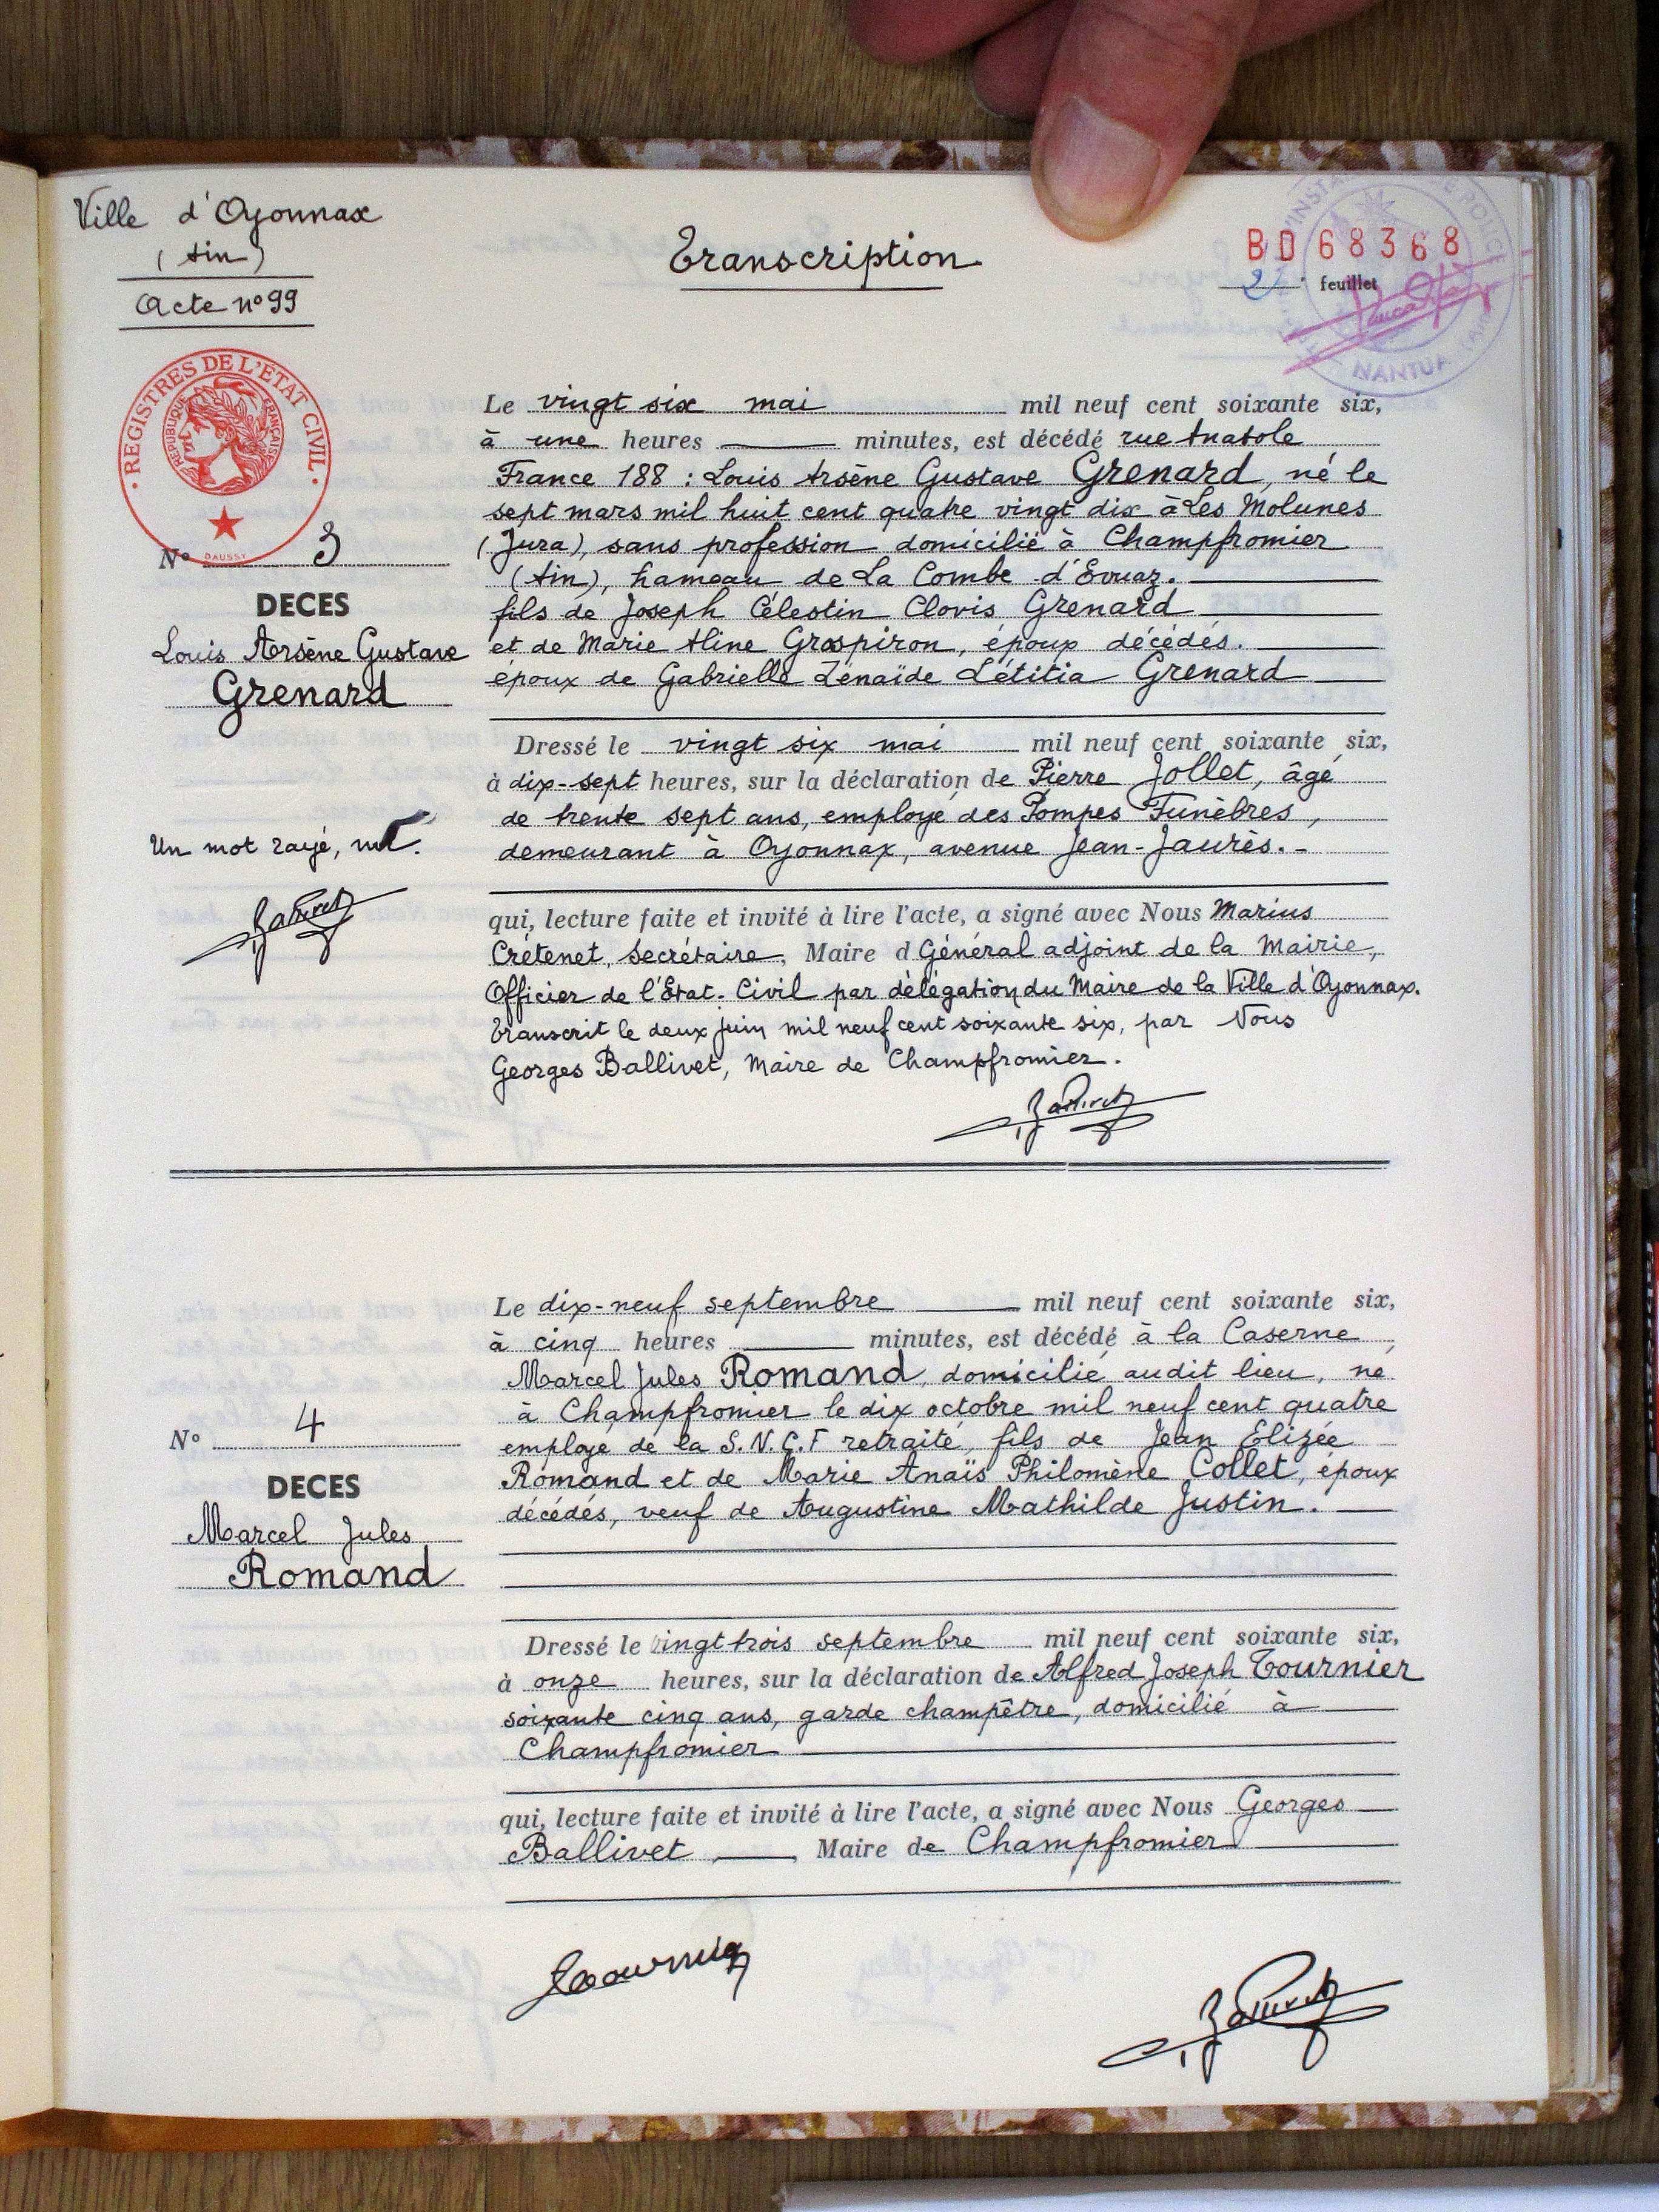 Ville d'Oyonnax
(Ain)
Acte n° 99
Transcription
BD 68368
2 feuillet
NANTUA
· REGISTRES DE L'ÉTAT CIVIL ·
RÉPUBLIQUE FRANÇAISE
DAUSSY
N° 3
DECES
Louis Arsène Gustave
Grenard
Un mot rayé, nul.
Le vingt six mai mil neuf cent soixante six,
à une heures minutes, est décédé rue Anatole
France 188 : Louis Arsène Gustave Grenard, né le
sept mars mil huit cent quatre vingt dix à Les Molunes
(Jura), sans profession domicilié à Champfromier
(Ain), hameau de La Combe d'Evuaz.
fils de Joseph Célestin Clovis Grenard
et de Marie Aline Grospiron, époux décédés.
époux de Gabrielle Zénaïde Létitia Grenard
Dressé le vingt six mai mil neuf cent soixante six,
à dix-sept heures, sur la déclaration de Pierre Jollet, âgé
de trente sept ans, employé des Pompes Funèbres,
demeurant à Oyonnax, avenue Jean-Jaurès.-
qui, lecture faite et invité à lire l'acte, a signé avec Nous Marius
Crétenet, Secrétaire, Maire d Général adjoint de la Mairie,
Officier de l'Etat-Civil par délégation du Maire de la Ville d'Oyonnax.
Transcrit le deux juin mil neuf cent soixante six, par Nous
Georges Ballivet, Maire de Champfromier.
Ballivet
N° 4
DECES
Marcel Jules
Romand
Le dix-neuf septembre mil neuf cent soixante six,
à cinq heures minutes, est décédé à la Caserne,
Marcel Jules Romand, domicilié audit lieu, né
à Champfromier le dix octobre mil neuf cent quatre
employé de la S.N.C.F retraité, fils de Jean Elizée
Romand et de Marie Anaïs Philomène Collet, époux
décédés, veuf de Augustine Mathilde Justin.
Dressé le vingt trois septembre mil neuf cent soixante six,
à onze heures, sur la déclaration de Alfred Joseph Tournier
soixante cinq ans, garde champêtre, domicilié à
Champfromier
qui, lecture faite et invité à lire l'acte, a signé avec Nous Georges
Ballivet, Maire de Champfromier
Tournier
Ballivet